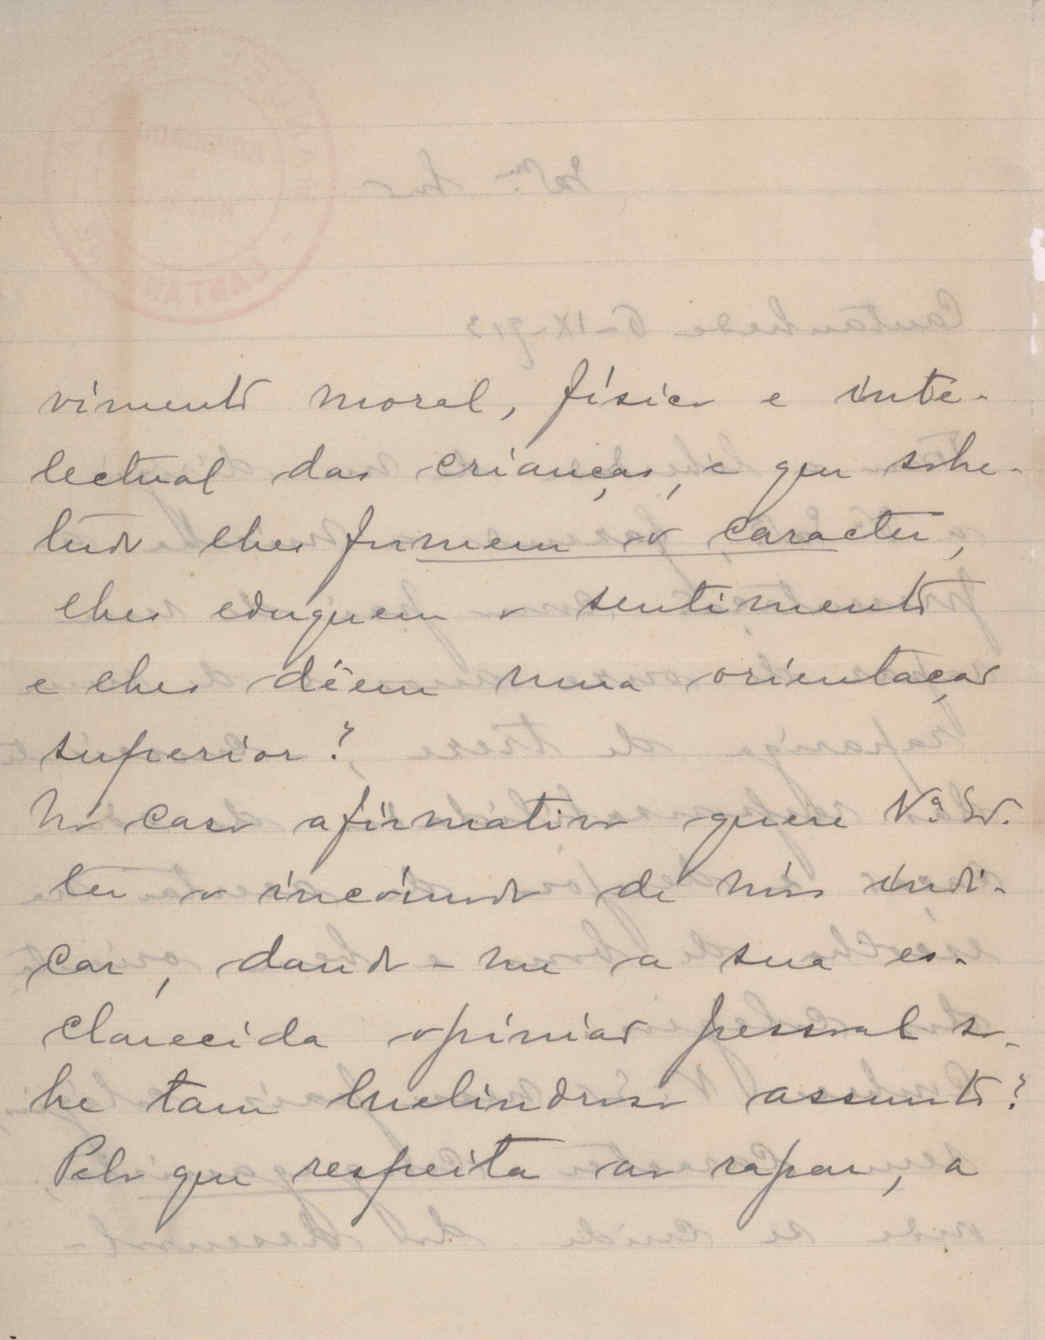 vimento moral, físico e inte-
lectual das crianças, e que sobre-
tudo lhes formem o caracter,
lhes eduquem o sentimento
e lhes dêem uma orientação
superior?
No caso afirmativo quere V.ª Sr.
ter o incómodo de nos indi-
car, dando-me a sua es-
clarecida opinião pessoal so-
bre tam melindroso assunto?
Pelo que respeita ao rapaz, a